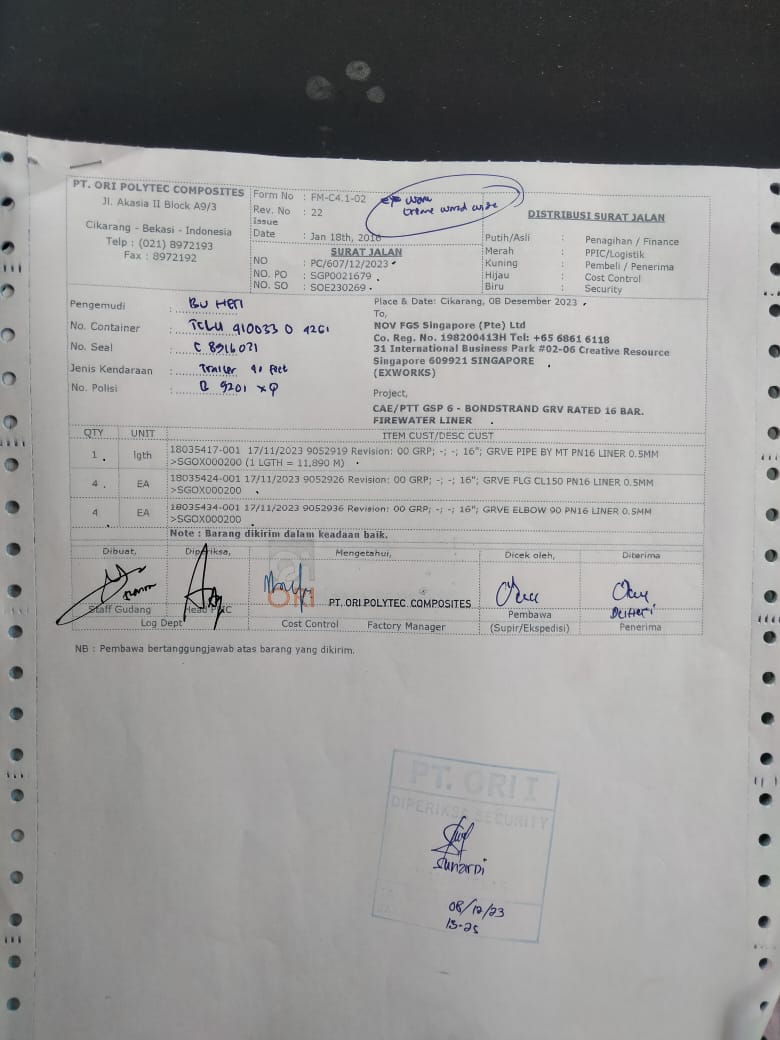 PT. ORI POLYTEC COMPOSITES
Jl. Akasia II Block A9/3
Cikarang - Bekasi - Indonesia
Telp : (021) 8972193
Fax : 8972192
Form No : FM-C4.1-02
Rev. No : 22
Issue
Date : Jan 18th, 2016
SURAT JALAN
NO : PC/607/12/2023
NO. PO : SGP0021679
NO. SO : SOE230269
DISTRIBUSI SURAT JALAN
Putih/Asli : Penagihan / Finance
Merah : PPIC/Logistik
Kuning : Pembeli / Penerima
Hijau : Cost Control
Biru : Security
Pengemudi : BU HETI
No. Container : TCLU 910033 0 4261
No. Seal : C 8916021
Jenis Kendaraan : Trailer 40 feet
No. Polisi : B 9201 XQ
Place & Date: Cikarang, 08 Desember 2023
To,
NOV FGS Singapore (Pte) Ltd
Co. Reg. No. 198200413H Tel: +65 6861 6118
31 International Business Park #02-06 Creative Resource
Singapore 609921 SINGAPORE
(EXWORKS)
Project,
CAE/PTT GSP 6 - BONDSTRAND GRV RATED 16 BAR.
FIREWATER LINER
QTY UNIT ITEM CUST/DESC CUST
1 lgth 18035417-001 17/11/2023 9052919 Revision: 00 GRP; -; -; 16"; GRVE PIPE BY MT PN16 LINER 0.5MM
>SGOX000200 (1 LGTH = 11,890 M)
4 EA 18035424-001 17/11/2023 9052926 Revision: 00 GRP; -; -; 16"; GRVE FLG CL150 PN16 LINER 0.5MM
>SGOX000200
4 EA 18035434-001 17/11/2023 9052936 Revision: 00 GRP; -; -; 16"; GRVE ELBOW 90 PN16 LINER 0.5MM
>SGOX000200
Note : Barang dikirim dalam keadaan baik.
Dibuat, Diperiksa, Mengetahui, Dicek oleh, Diterima
ORI
PT. ORI POLYTEC COMPOSITES
Staff Gudang Head PPIC
Log Dept Cost Control Factory Manager
Pembawa
(Supir/Ekspedisi)
Penerima
NB : Pembawa bertanggungjawab atas barang yang dikirim.
PT. ORI I
DIPERIKSA SECURITY
Sunardi
08/12/23
13-25